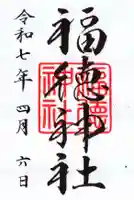 福徳神社
令和七年 四月 六日